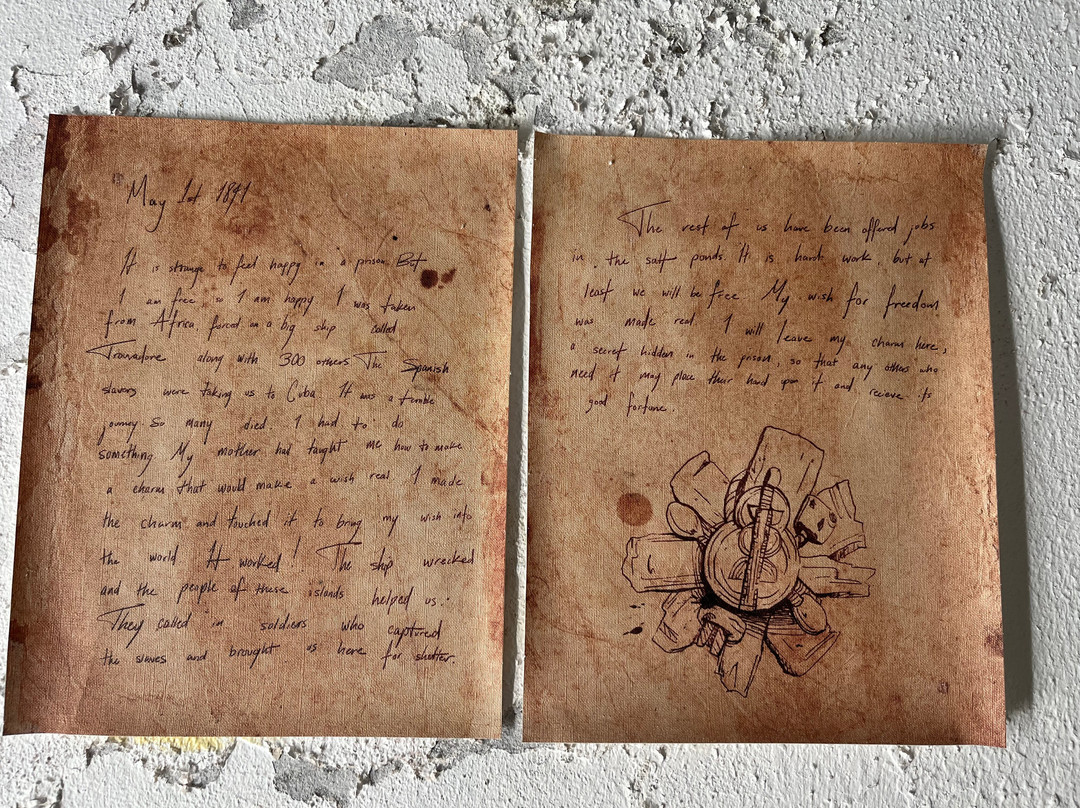 May 1st 1841
It is strange to feel happy in a prison. But
I am free, so I am happy I was taken
from Africa, forced on a big ship called
Trouvadore along with 300 others The Spanish
slavers were taking us to Cuba It was a terrible
journey So many died. I had to do
something My mother had taught me how to make
a charm that would make a wish real I made
the charm and touched it to bring my wish into
the world It worked! The ship wrecked
and the people of these islands helped us.
They called in soldiers who captured
the slavers and brought us here for shelter.
The rest of us have been offered jobs
in the salt ponds. It is hard work, but at
least we will be free My wish for freedom
was made real I will leave my charm here,
a secret hidden in the prison, so that any others who
need it may place their hand upon it and recieve its
good fortune.